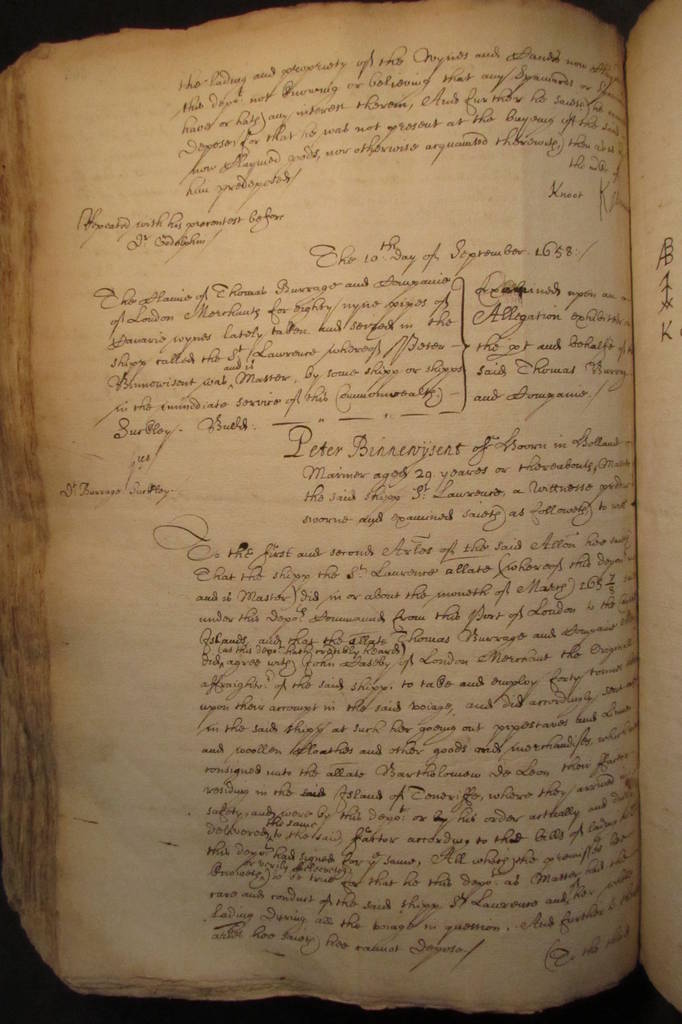 the lading and propriety of the Wynes and Goods now
this depot not knowing or beleiving that any Spaniards or
have or hath any interest therein, And further he saieth he cannot
depose for that he was not present at the buying of the said
now Claymed goods, nor otherwise acquainted therewith, then as
him predeposed/
Knoot
Repeated with his precontest before
Dr. Godolphin/
The 10th. day of September. 1658:/
The Claime of Thomas Burrage and Companie
of London Merchants for eighty nyne pipes of
Canarie wynes lately taken and seized in the
shipp called the St. Lawrence whereof Peter
Binnewisent was and is Master, by some shipp or shipps
in the immediate service of this Commonwealth.
Examined upon an
Allegation exhibited
the pt and behalfe of
said Thomas Burrage
and Companie./
Suckley. Budd.
Peter Binnewijsent of Hoorn in Holland
Mariner aged 29 yeares or thereabouts, Master
the said shipp St. Lawrence, a Wittnesse
sworne and examined saieth as followeth to
jus
Dr. Burrage Suckley.
To the first and second Arles of the said Allon hee saieth
That the shipp the St. Laurence allate (whereof this depot
and is Master) did in or about the moneth of March 1657/8
under this depots Command from this Port of London to the Canarie
Islands, and that the allate Thomas Burrage and Companie
(as this depot hath credibly heard)
did agree with John Caseby of London Merchant the
affraighter of the said shipp to take and employ forty tonnes
upon their accompt in the said voiage, and did accordingly send
in the said shipp at such her going out pipestaves and Linnen
and woollen Cloathes and other goods and merchandises, which
consigned unto the allate Bartholomew De Leon their factor
residing in the said Island of Teneriffe, where they arrived
safety, and were by this depot or by his order actually and
delivered to the said factor according to the bills of lading
the same
this depot had signed for ye same, All which the premisses hee
knoweth to be true for that he this depot as Master had the
or verily beleeveth
care and conduct of the said shipp St. Lawrence and of her
lading during all the voiage in question. And further to these
arles hee saieth hee cannot depose./
To the third